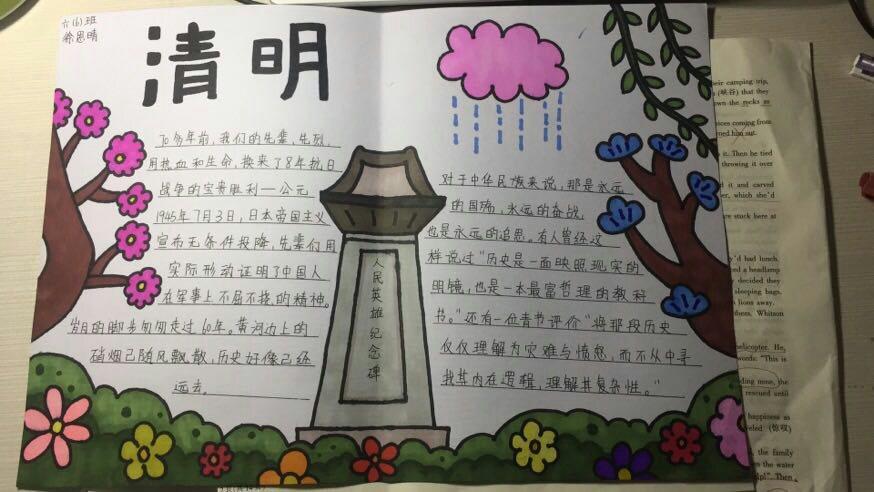 六(6)班
徐思晴
清明
70多年前，我们的先辈，先烈，
用热血和生命，换来了8年抗日
战争的宝贵胜利—公元
1945年7月3日，日本帝国主义
宣布无条件投降，先辈们用
实际形动证明了中国人
在军事上不屈不挠的精神。
岁月的脚步匆匆走过60年。黄河边上的
硝烟已随风飘散，历史好像已经
远去。
人民英雄纪念碑
对于中华民族来说，那是永远
的国殇，永远的奋战，
也是永远的追思。有人曾经这
样说过"历史是一面映照现实的
眼镜，也是一本最富哲理的教科
书。"还有一位青节评价"将那段历史
仅仅理解为灾难与愤怒，而不从中寻
找其内在逻辑，理解其复杂性。"
eir camping trip,
(峡谷) that they
own the rocks as
oices coming from
rned him out.
it. Then he tied
throwing it over
d it and carved
er, which she'd
ere stuck here at
y'd had lunch.
ed a headlamp
y decided they
sleeping bags,
n lions away.
thers. Whitson
helicopter. He,
words: "This is
ding none, the
rescued until
happiness as
veled (惊叹)
, the family
en the water
lp!". Then